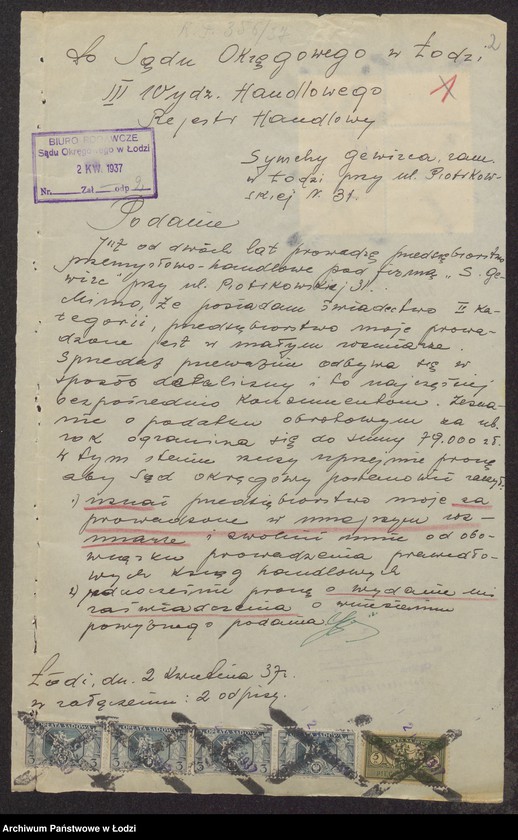 2
Do Sądu Okręgowego w Łodzi
III Wydz. Handlowego
Rejestr Handlowy
1
BIURO PODAWCZE
Sądu Okręgowego w Łodzi
2 KW. 1937
Nr. Zał. odp. 2
Symchy Gewirca, zam.
w Łodzi przy ul. Piotrkow-
skiej N. 31.
Podanie
Już od dwóch lat prowadzę przedsiębiorstwo
przemysłowo-handlowe pod firmą „S. Ge-
wirc" przy ul. Piotrkowskiej 31.
Mimo, że posiadam świadectwo II ka-
tegorii, przedsiębiorstwo moje prowa-
dzone jest w małym rozmiarze.
Sprzedaż przeważnie odbywa się w
sposób detaliczny i to najczęściej
bezpośrednio konsumentom. Zezna-
nie o podatku obrotowym za ub.
rok ogranicza się do sumy 79.000 zł.
W tym stanie rzeczy uprzejmie proszę
aby Sąd Okręgowy postanowić raczył:
1) uznać przedsiębiorstwo moje za
prowadzone w mniejszym roz-
miarze i zwolnić mnie od obo-
wiązku prowadzenia prawidło-
wych ksiąg handlowych
2) jednocześnie proszę o wydanie mi
zaświadczenia o wniesieniu
powyższego podania
Łódź, dn. 2 Kwietnia 37r.
w załączeniu: 2 odpisy.
OPŁATA SĄDOWA
OPŁATA SĄDOWA
OPŁATA SĄDOWA
OPŁATA SĄDOWA
Archiwum Państwowe w Łodzi